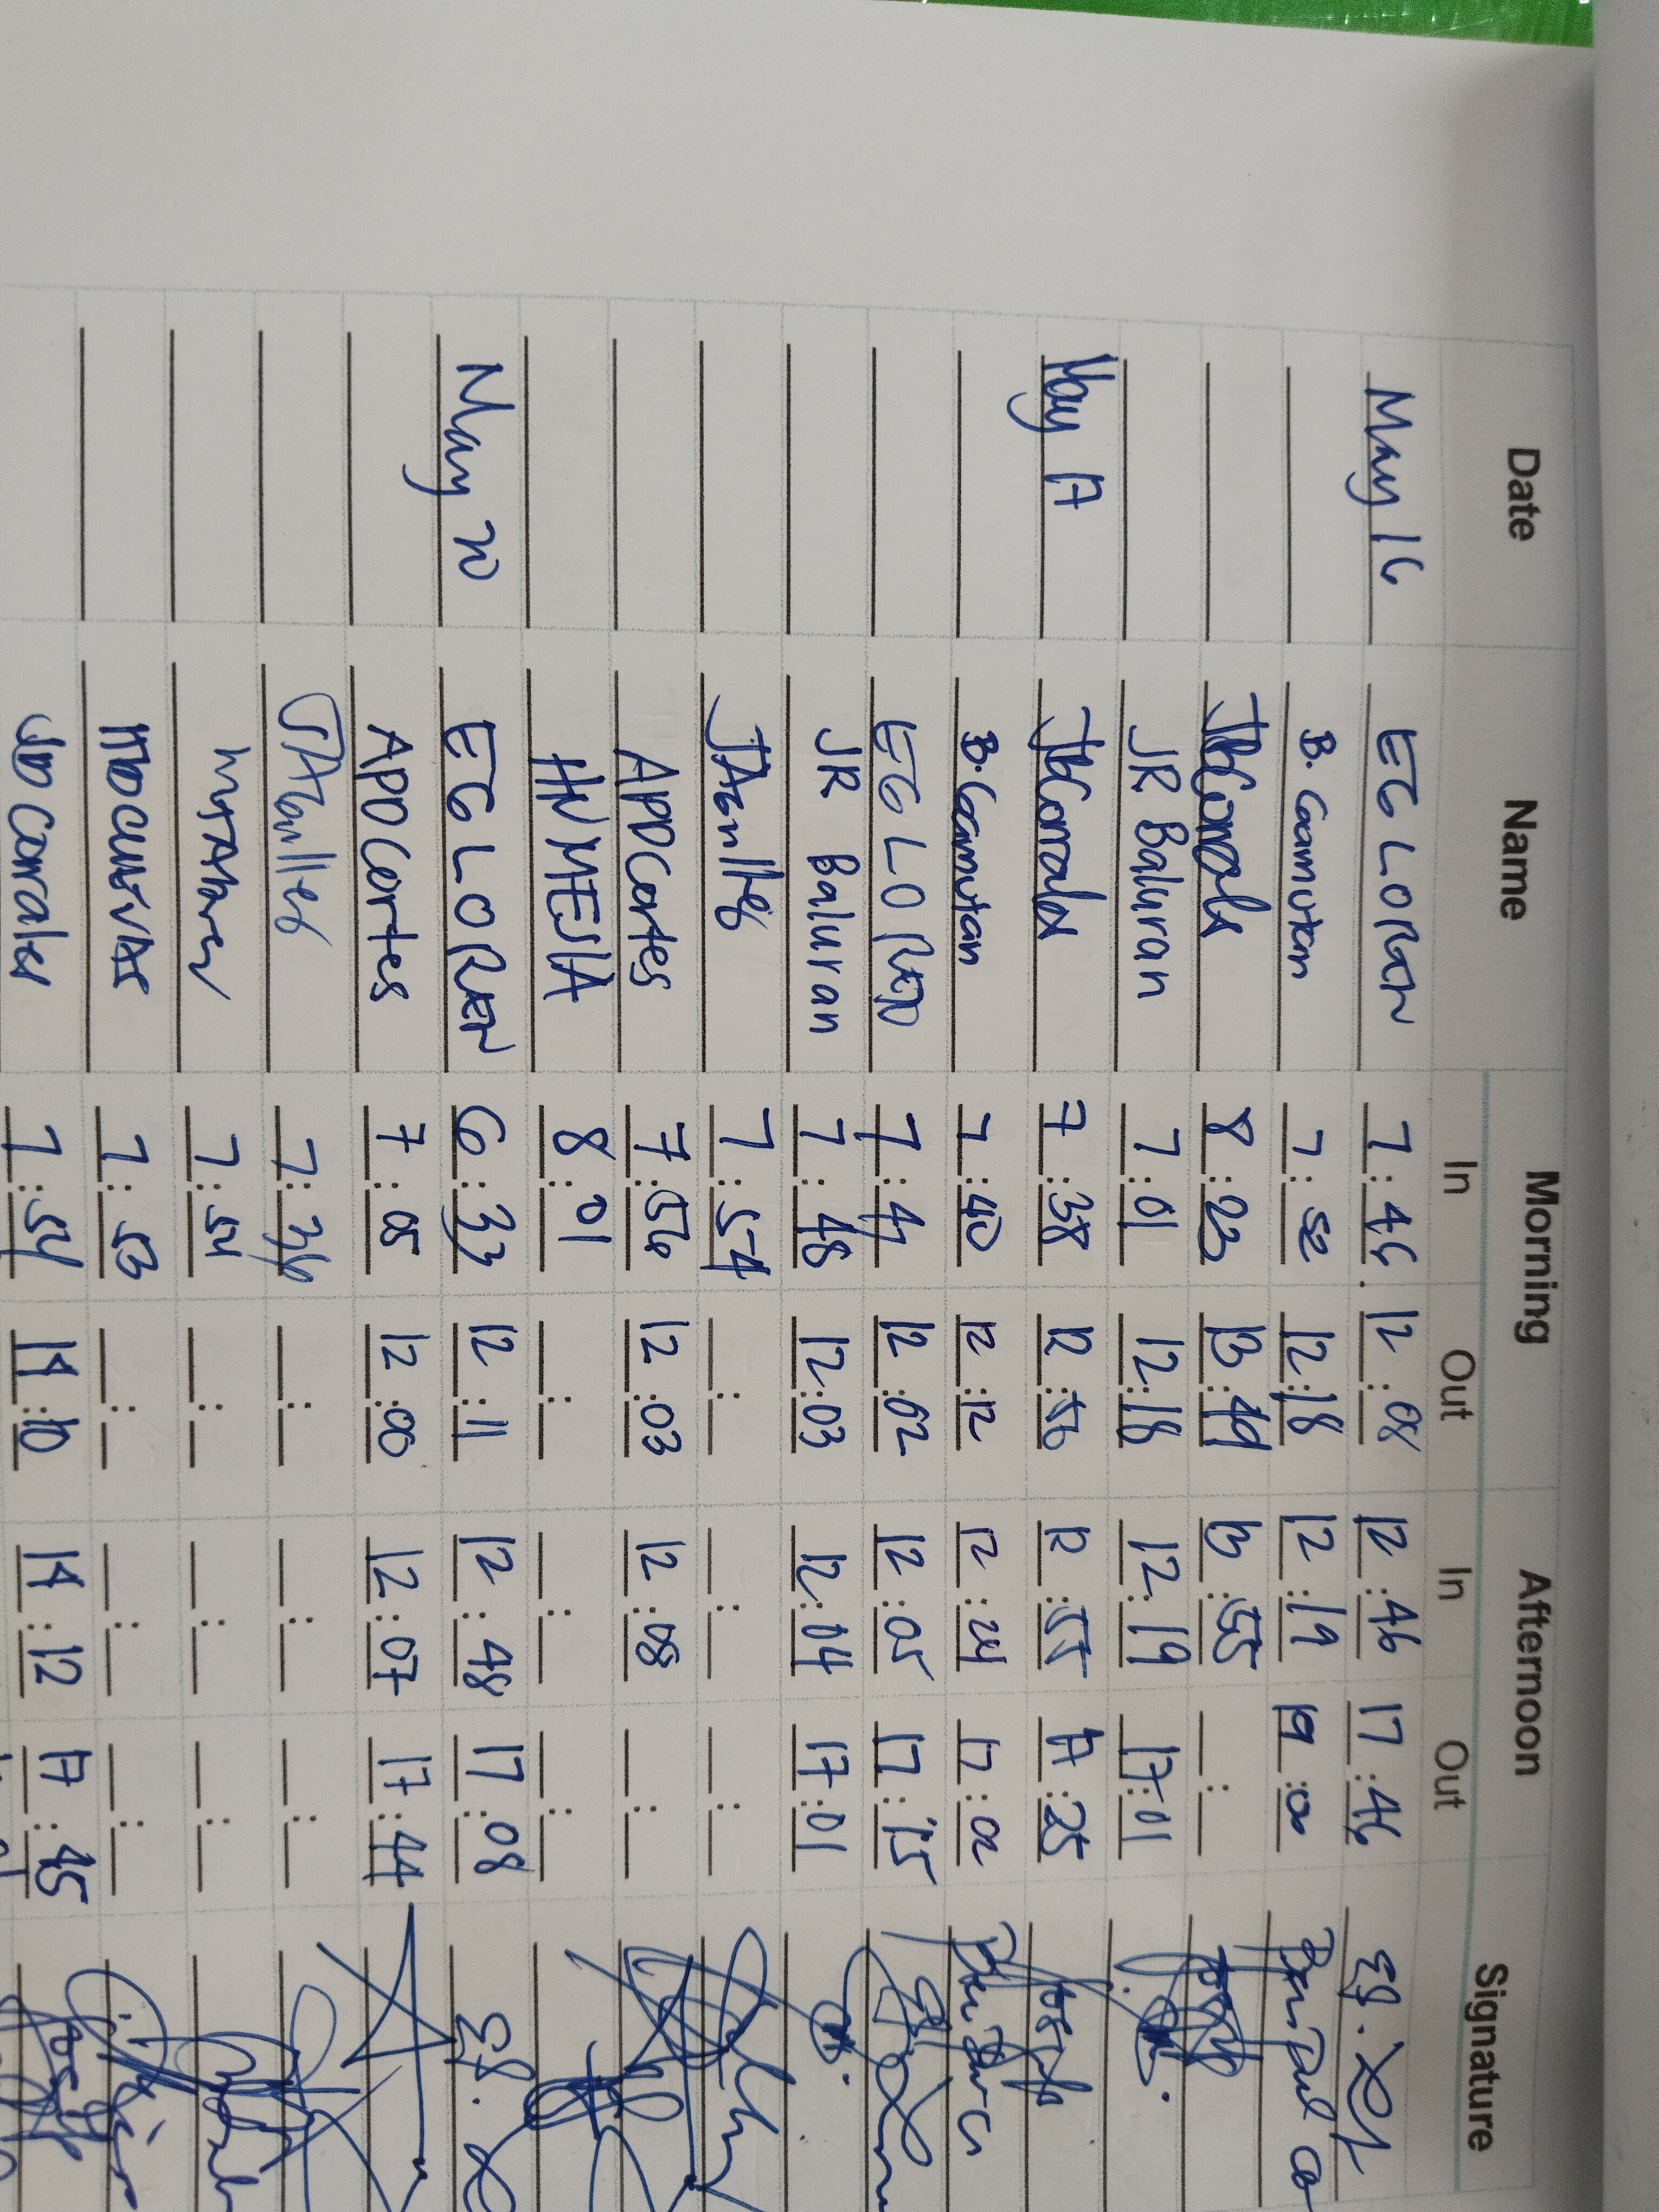 Date Name Morning Afternoon Signature
In Out In Out
May 16 EG LOREN 7:45 12:08 12:46 17:46
B. Caamutan 7:52 12:18 12:19 19:00
JBCorrales 8:23 13:49 13:55
JR Baluran 7:01 12:18 12:19 17:01
May 17 JBCorrales 7:38 12:56 17:25
B. Caamutan 7:40 12:12 12:24 17:02
EG LOREN 7:47 12:02 12:05 17:15
JR Baluran 7:48 12:03 12:04 17:01
JAguilles 7:54
APDCortes 7:56 12:03 12:08
HNMEJIA 8:01
May 20 EG LOREN 6:33 12:11 12:48 17:08
APDCortes 7:05 12:00 12:07 17:44
JAguilles 7:36
7:54
7:53
Corrales 7:54 14:10 14:12 17:45